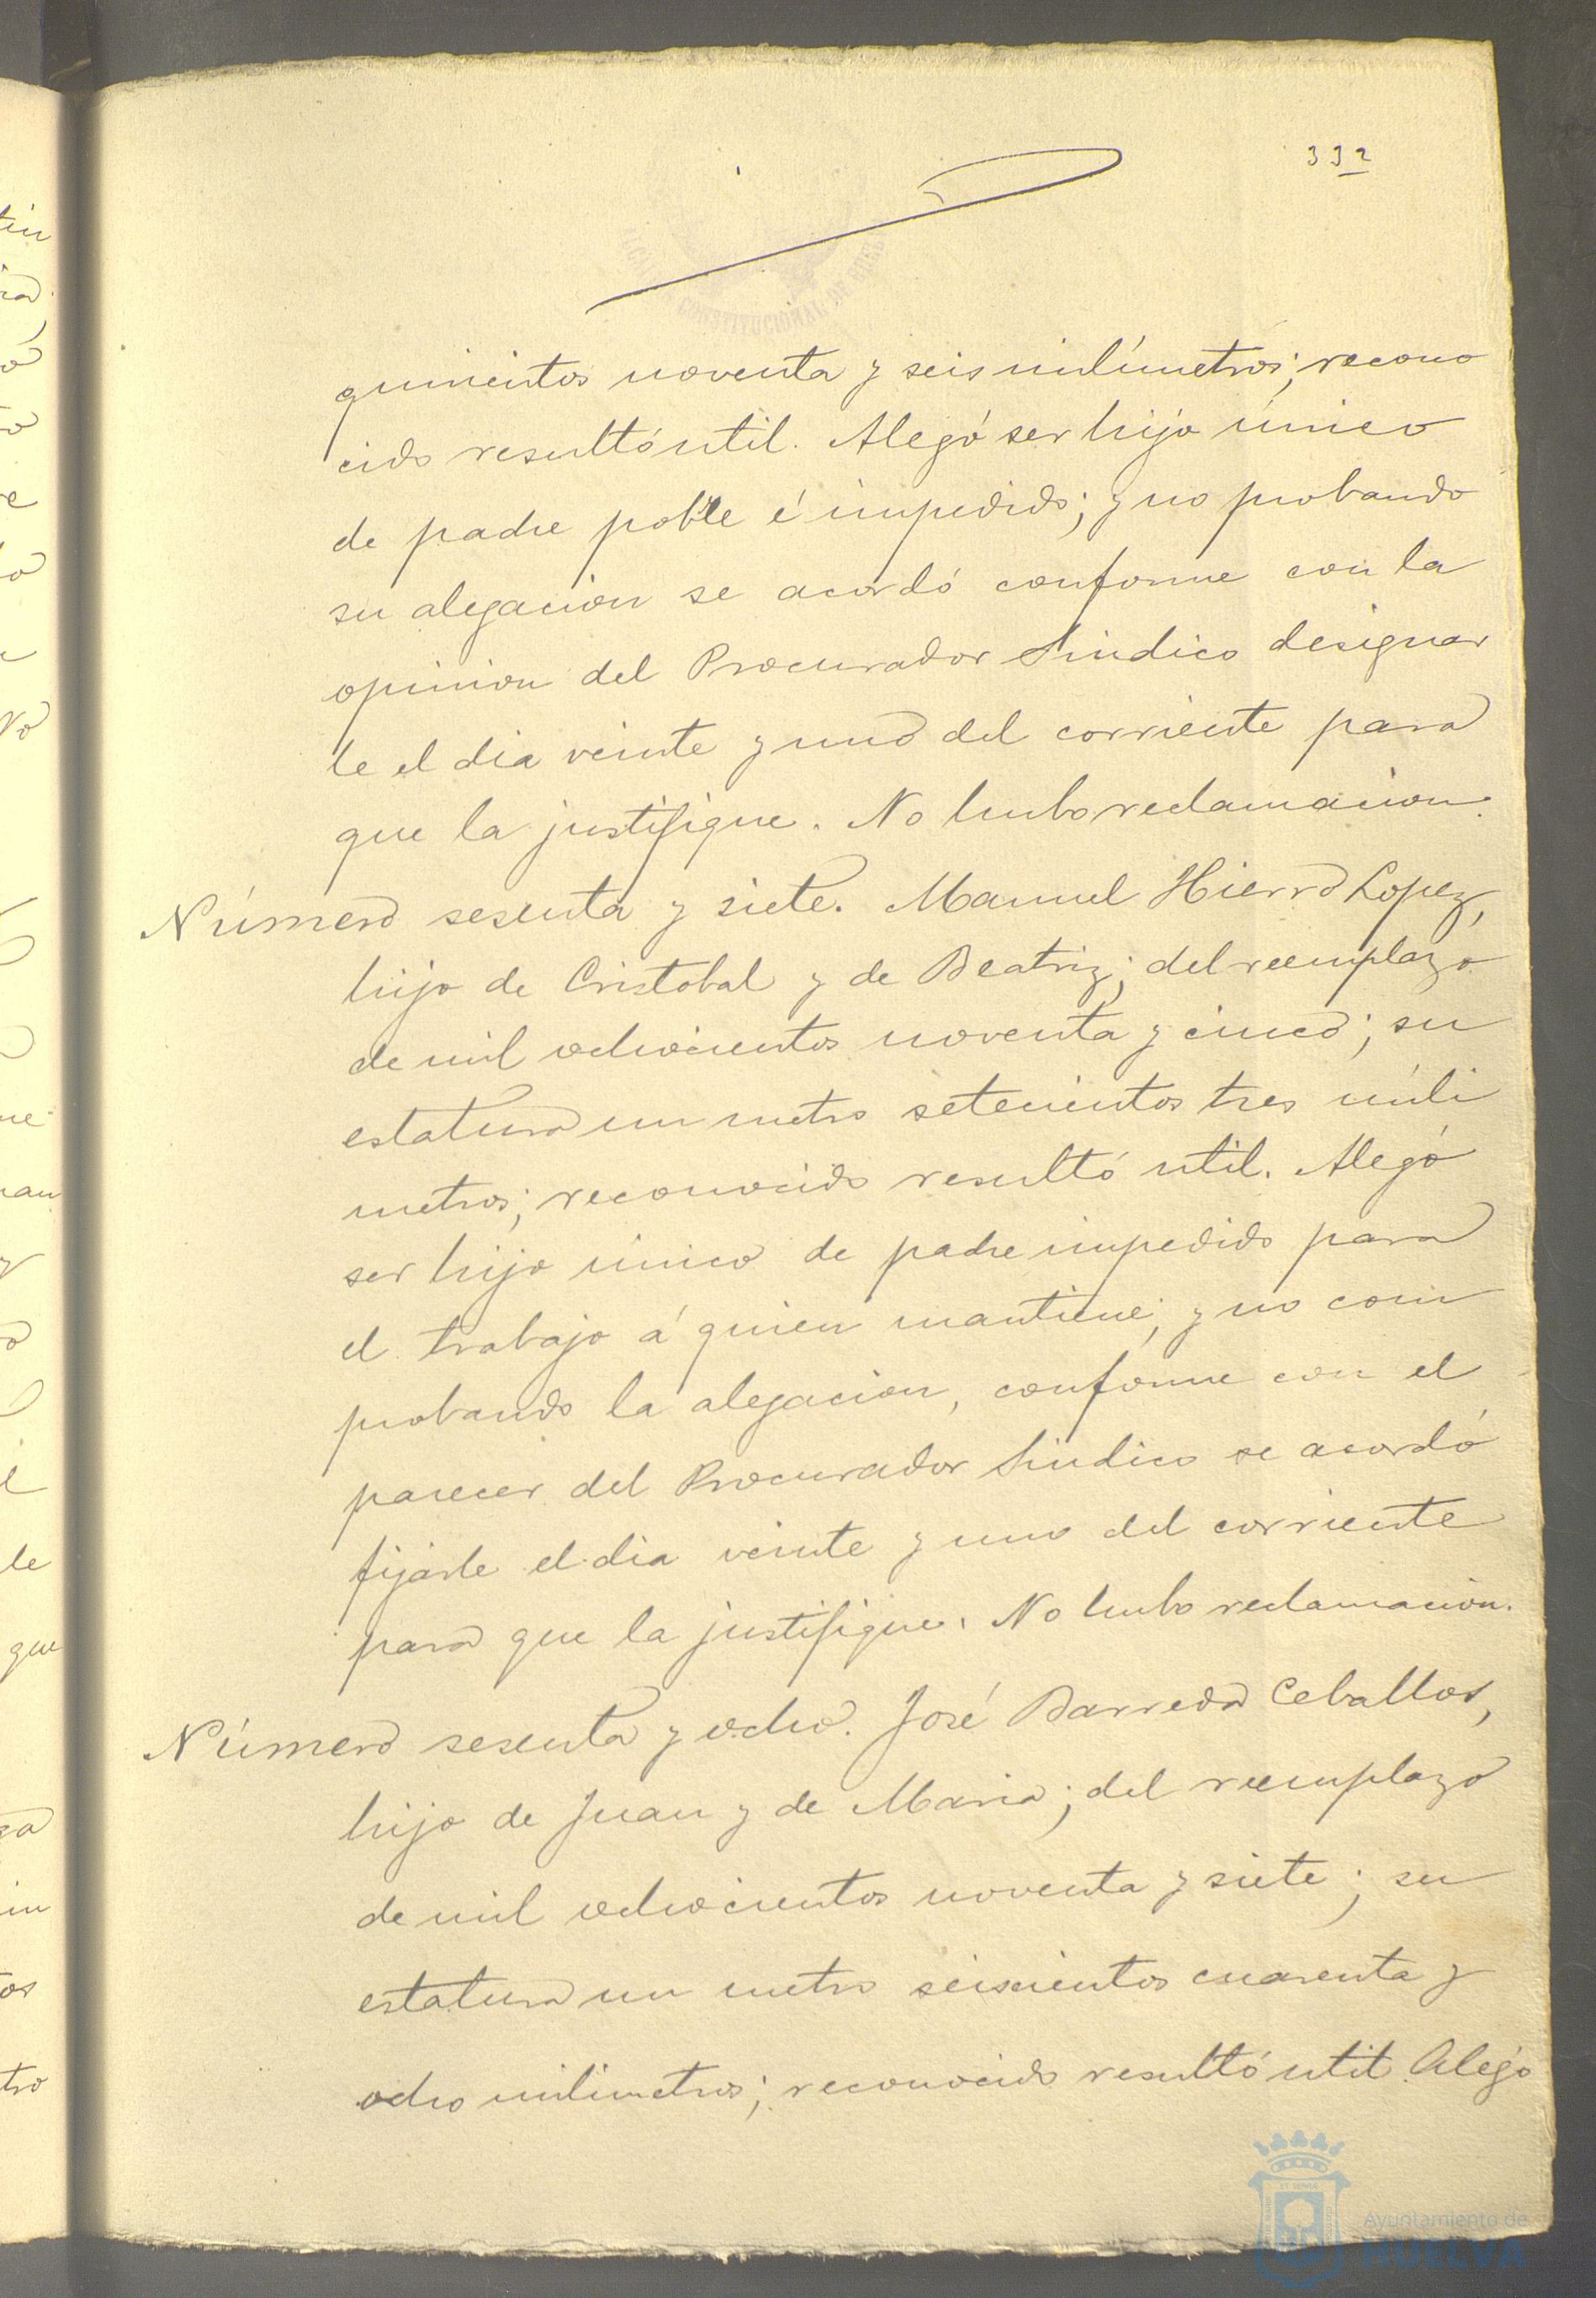 332
CONSTITUCIONAL DE
quinientos noventa y seis milímetros; recono
cido resultó útil. Alegó ser hijo único
de padre poble é impedido; y no probando
su alegacion se acordó conforme con la
opinion del Procurador Sindico designar
le el dia veinte y uno del corriente para
que la justifique. No hubo reclamacion.
Número sesenta y siete. Manuel Hierro Lopez,
hijo de Cristobal y de Beatriz; del reemplazo
de mil ochocientos noventa y cinco; su
estatura un metro setecientos tres mili
metros; reconocido resultó util. Alegó
ser hijo único de padre impedido para
el trabajo á quien mantiene; y no com
probando la alegacion, conforme con el
parecer del Procurador Sindico se acordó
fijarle el dia veinte y uno del corriente
para que la justifique. No hubo reclamacion.
Número sesenta y ocho. José Barreda Ceballos,
hijo de Juan y de Maria; del reemplazo
de mil ochocientos noventa y siete; su
estatura un metro seiscientos cuarenta y
ocho milimetros; reconocido resultó util. Alegó
Ayuntamiento de
HUELVA